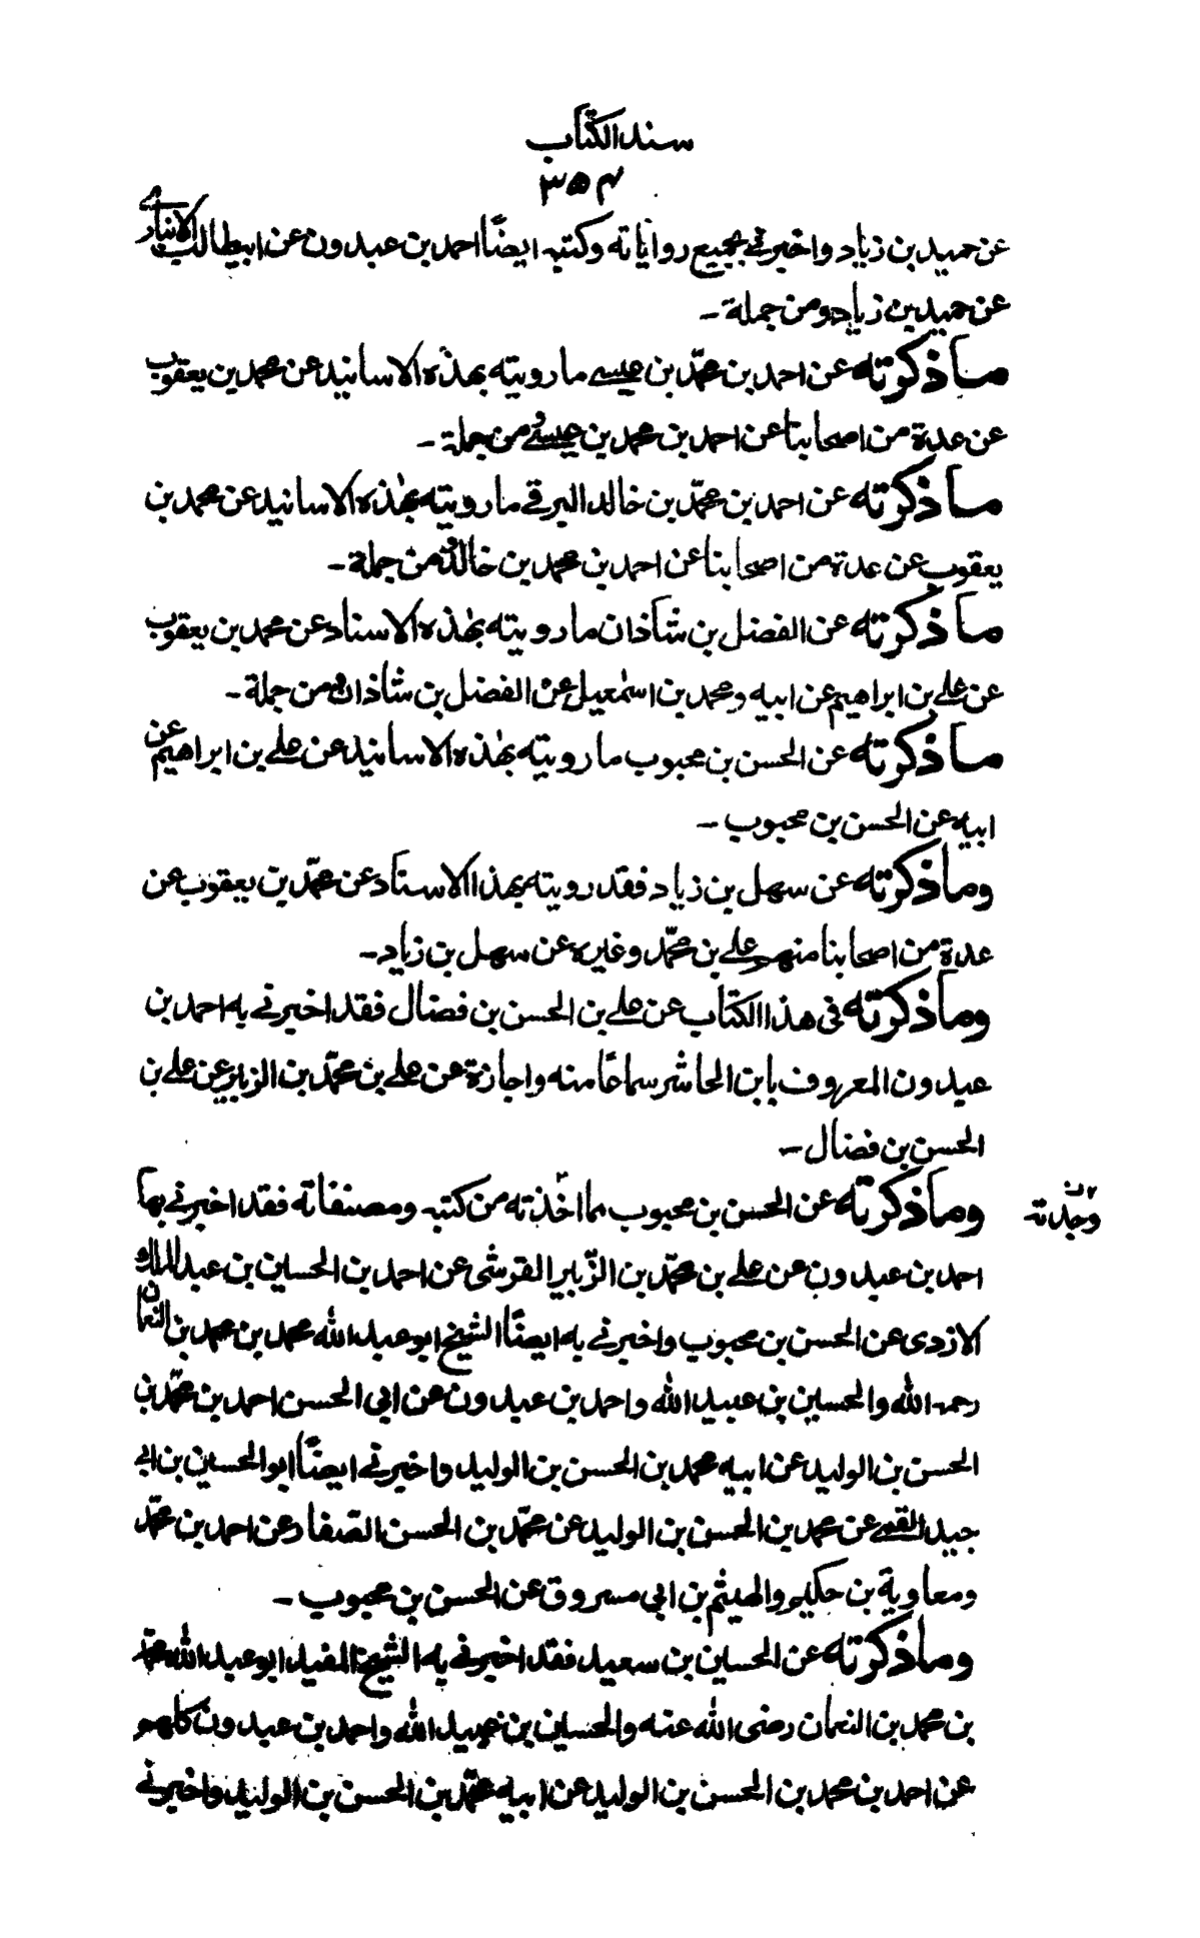 سند الكتاب
٣٥٤
عن حميد بن زياد واخبرني بجميع رواياته وكتبه ايضًا احمد بن عبدون عن ابيطالب الانباري
عن حميد بن زياد ومن جملة ـ
ما ذكرته عن احمد بن محمّد بن عيسى ما رويته بهذه الاسانيد عن محمد بن يعقوب
عن عدة من اصحابنا عن احمد بن محمد بن عيسى ومن جملة ـ
ما ذكرته عن احمد بن محمّد بن خالد البرقي ما رويته بهذه الاسانيد عن محمد بن
يعقوب عن عدة من اصحابنا عن احمد بن محمد بن خالد ومن جملة ـ
ما ذكرته عن الفضل بن شاذان ما رويته بهذه الاسناد عن محمد بن يعقوب
عن علي بن ابراهيم عن ابيه ومحمد بن اسمعيل عن الفضل بن شاذان ومن جملة ـ
ما ذكرته عن الحسن بن محبوب ما رويته بهذه الاسانيد عن علي بن ابراهيم عن
ابيه عن الحسن بن محبوب ـ
وما ذكرته عن سهل بن زياد فقد رويته بهذا الاسناد عن محمّد بن يعقوب عن
عدة من اصحابنا منهم علي بن محمّد وغيره عن سهل بن زياد ـ
وما ذكرته في هذا الكتاب عن علي بن الحسن بن فضال فقد اخبرني به احمد بن
عبدون المعروف بابن الحاشر سماعًا منه واجازة عن علي بن محمّد بن الزبير عن علي بن
الحسن بن فضال ـ
وما ذكرته عن الحسن بن محبوب مما اخذته من كتبه ومصنفاته فقد اخبرني بها
وجدته
احمد بن عبدون عن علي بن محمّد بن الزّبير القرشي عن احمد بن الحسين بن عبد الملك
الازدي عن الحسن بن محبوب واخبرني به ايضًا الشيخ ابو عبد الله محمد بن محمد بن النعمان
رحمه الله والحسين بن عبيد الله واحمد بن عبدون عن ابي الحسن احمد بن محمّد بن
الحسن بن الوليد عن ابيه محمد بن الحسن بن الوليد واخبرني ايضًا ابو الحسين بن ابي
جيد القمي عن محمد بن الحسن بن الوليد عن محمّد بن الحسن الصّفار عن احمد بن محمّد
ومعاوية بن حكيم والهيثم بن ابي مسروق عن الحسن بن محبوب ـ
وما ذكرته عن الحسين بن سعيد فقد اخبرني به الشيخ المفيد ابو عبد الله محمّد
بن محمد بن النعمان رضي الله عنه والحسين بن عبيد الله واحمد بن عبدون كلهم
عن احمد بن محمد بن الحسن بن الوليد عن ابيه محمّد بن الحسن بن الوليد واخبرني